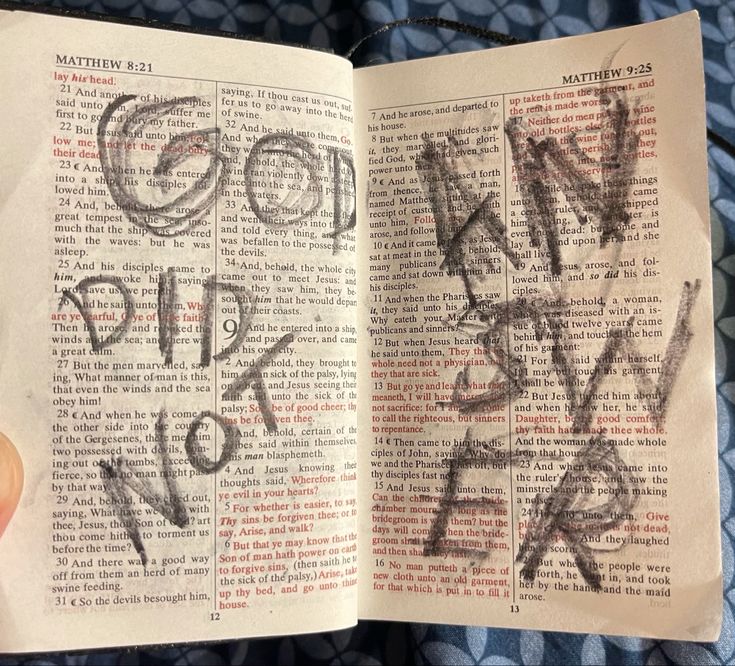 GOD
DID
NOT
AN
SW
ER
MATTHEW 8:21
lay his head.
21 And another of his disciples
said unto him, Lord, suffer me
first to go and bury my father.
22 But Jesus said unto him, Fol-
low me; and let the dead bury
their dead.
23 ¶ And when he was entered
into a ship, his disciples fol-
lowed him.
24 And, behold, there arose a
great tempest in the sea, inso-
much that the ship was covered
with the waves: but he was
asleep.
25 And his disciples came to
him, and awoke him, saying,
Lord, save us: we perish.
26 And he saith unto them, Why
are ye fearful, O ye of little faith?
Then he arose, and rebuked the
winds and the sea; and there was
a great calm.
27 But the men marvelled, say-
ing, What manner of man is this,
that even the winds and the sea
obey him!
28 ¶ And when he was come to
the other side into the country
of the Gergesenes, there met him
two possessed with devils, com-
ing out of the tombs, exceeding
fierce, so that no man might pass
by that way.
29 And, behold, they cried out,
saying, What have we to do with
thee, Jesus, thou Son of God? art
thou come hither to torment us
before the time?
30 And there was a good way
off from them an herd of many
swine feeding.
31 ¶ So the devils besought him,
saying, If thou cast us out, suf-
fer us to go away into the herd
of swine.
32 And he said unto them, Go.
And when they
they went
and, behold, the whole herd
of swine ran violently down a steep
place into the sea, and perished
in the waters.
33 And they that kept them fled,
and went their ways into the city,
and told every thing, and what
was befallen to the possessed of
the devils.
34 And, behold, the whole city
came out to meet Jesus: and
when they saw him, they be-
sought him that he would depart
out of their coasts.
9 And he entered into a ship,
and passed over, and came
into his own city.
2 And, behold, they brought to
him a man sick of the palsy, lying
on a bed: and Jesus seeing their
faith said unto the sick of the
palsy; Son, be of good cheer; thy
sins be forgiven thee.
3 And, behold, certain of the
scribes said within themselves,
This man blasphemeth.
4 And Jesus knowing their
thoughts said, Wherefore think
ye evil in your hearts?
5 For whether is easier, to say,
Thy sins be forgiven thee; or to
say, Arise, and walk?
6 But that ye may know that the
Son of man hath power on earth
to forgive sins, (then saith he to
the sick of the palsy,) Arise, take
up thy bed, and go unto thine
house.
12
MATTHEW 9:25
7 And he arose, and departed to
his house.
8 But when the multitudes saw
it, they marvelled, and glori-
fied God, which had given such
power unto men.
9 ¶ And as Jesus passed forth
from thence, he saw a man,
named Matthew, sitting at the
receipt of custom: and he saith
unto him, Follow me. And he
arose, and followed him.
10 ¶ And it came to pass, as Jesus
sat at meat in the house, behold,
many publicans and sinners
came and sat down with him and
his disciples.
11 And when the Pharisees saw
it, they said unto his disciples,
Why eateth your Master with
publicans and sinners?
12 But when Jesus heard that,
he said unto them, They that be
whole need not a physician, but
they that are sick.
13 But go ye and learn what that
meaneth, I will have mercy, and
not sacrifice: for I am not come
to call the righteous, but sinners
to repentance.
14 ¶ Then came to him the dis-
ciples of John, saying, Why do
we and the Pharisees fast oft, but
thy disciples fast not?
15 And Jesus said unto them,
Can the children of the bride-
chamber mourn, as long as the
bridegroom is with them? but the
days will come, when the bride-
groom shall be taken from them,
and then shall they fast.
16 No man putteth a piece of
new cloth unto an old garment,
for that which is put in to fill it
up taketh from the garment, and
the rent is made worse.
17 Neither do men put new wine
into old bottles: else the bottles
break, and the wine runneth out,
and the bottles perish: but they
put new wine into new bottles,
and both are preserved.
18 While he spake these things
unto them, behold, there came
a certain ruler, and worshipped
him, saying, My daughter is
even now dead: but come and
lay thy hand upon her, and she
shall live.
19 And Jesus arose, and fol-
lowed him, and so did his dis-
ciples.
20 ¶ And, behold, a woman,
which was diseased with an is-
sue of blood twelve years, came
behind him, and touched the hem
of his garment:
21 For she said within herself,
If I may but touch his garment,
I shall be whole.
22 But Jesus turned him about,
and when he saw her, he said,
Daughter, be of good comfort;
thy faith hath made thee whole.
And the woman was made whole
from that hour.
23 And when Jesus came into
the ruler's house, and saw the
minstrels and the people making
a noise,
24 He said unto them, Give
place: for the maid is not dead,
but sleepeth. And they laughed
him to scorn.
25 But when the people were
put forth, he went in, and took
her by the hand, and the maid
arose.
13